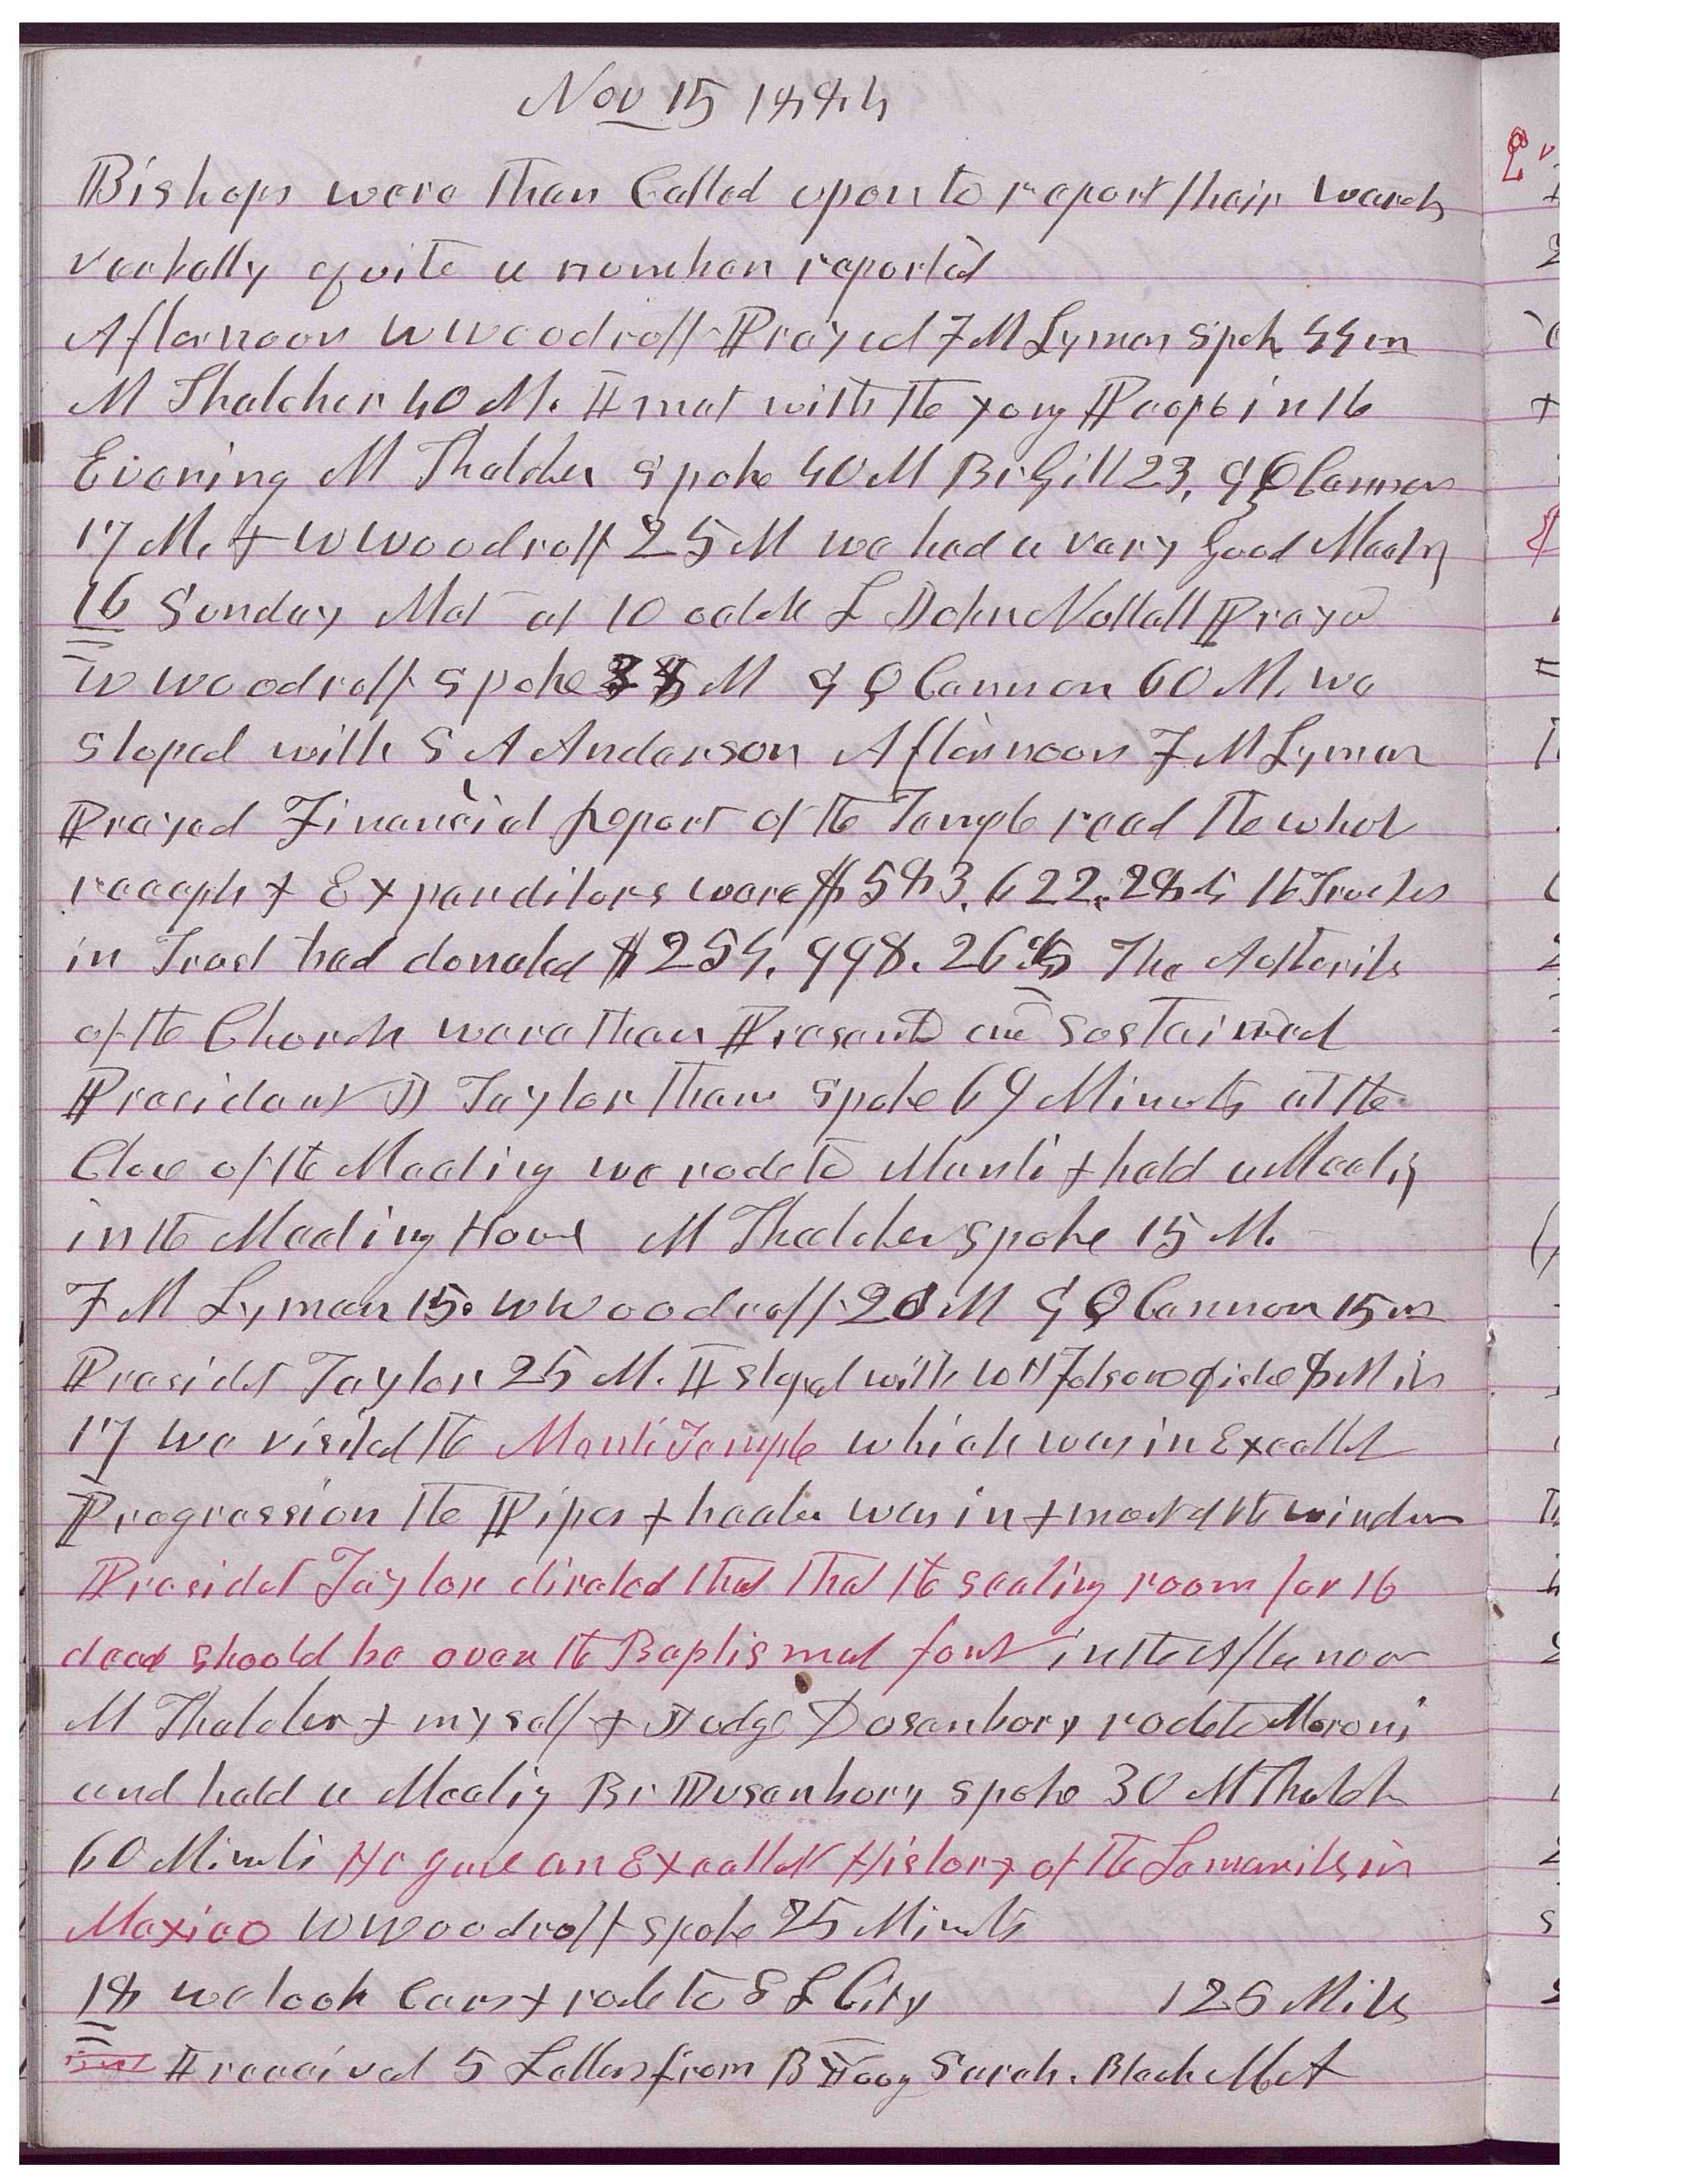 Nov 15 1884
Bishops were then Called upon to report their wards
verbally quite a number reported
Afternoon W Woodruff Prayed F M Lyman spok 55 m
M Thatcher 40 M. I met with the yong People in the
Evening M Thatcher spoke 40 M Br Gill 23, G Q Cannon
17 M. & W Woodruff 25 M we had a very good Meetig
16 Sunday Met at 10 oclok L John Nuttall Prayed
W Woodruff spoke M G Q Cannon 60 M. we
stoped with S A Anderson Afternoon F M Lyman
Prayed Financial Report of the Temple read the whol
receipts & Expenditors were $583,622.28 the Trustes
in Trust had donated $254,998.26 The Autherits
of the Church were then Presented and sustained
President J Taylor then spoke 69 Minuts at the
Close of the Meeting we rode to Manti & held a Meetig
in the Meeting House M Thatcher spoke 15 M.
F M Lyman 15. W Woodruff 20 M G Q Cannon 15 m
Presidet Taylor 25 M. I stoped with W H Folsom dista 8 Mils
17 we visited the Manti Temple which was in Excellet
Progression the Pipes & heater was in & most of the windows
Presidet Taylor directed that that the sealing room for the
dead should be over the Baptismal font in the Afternoon
M Thatcher & myself & Judge Dusenbery rode to Moroni
and held a Meetig Br Dusenbery spoke 30 M Thatch
60 Minuts He gave an Excellet History of the Lamanites in
Mexico W Woodruff spoke 25 Minuts
18 we took Cars & rode to S L City 126 Miles
I received 5 Letters from B Young Sarah. Black